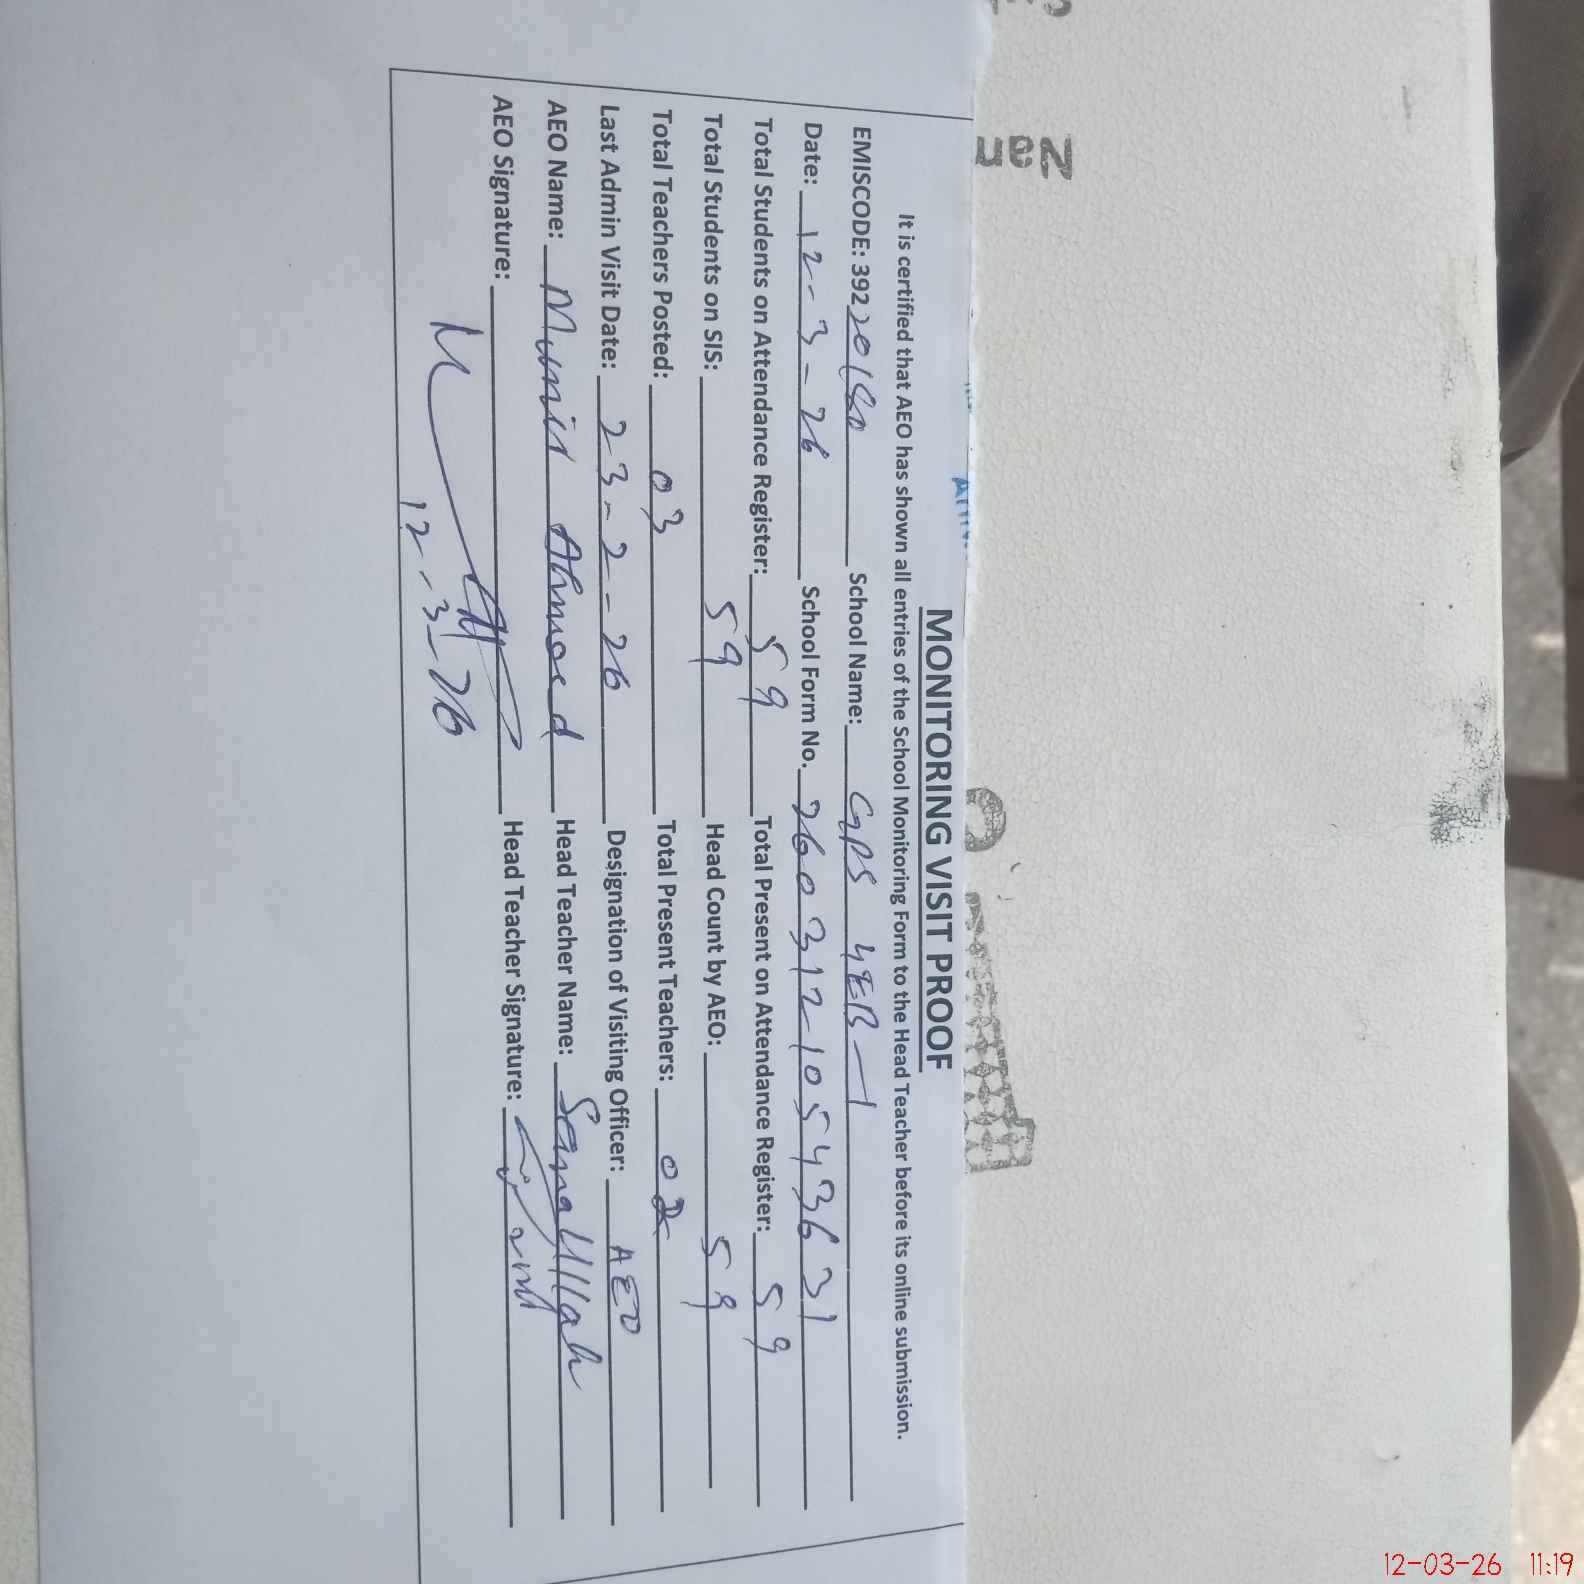 MONITORING VISIT PROOF
It is certified that AEO has shown all entries of the School Monitoring Form to the Head Teacher before its online submission.
EMISCODE: 39220180 School Name: GPS 4EB-1
Date: 12-3-26 School Form No. 26031210543631
Total Students on Attendance Register: 59 Total Present on Attendance Register: 59
Total Students on SIS: 59 Head Count by AEO: 59
Total Teachers Posted: 03 Total Present Teachers: 02
Last Admin Visit Date: 23-2-26 Designation of Visiting Officer: AEO
AEO Name: Munir Ahmad Head Teacher Name: Sana Ullah
AEO Signature: Head Teacher Signature:
12-3-26
12-03-26 11:19